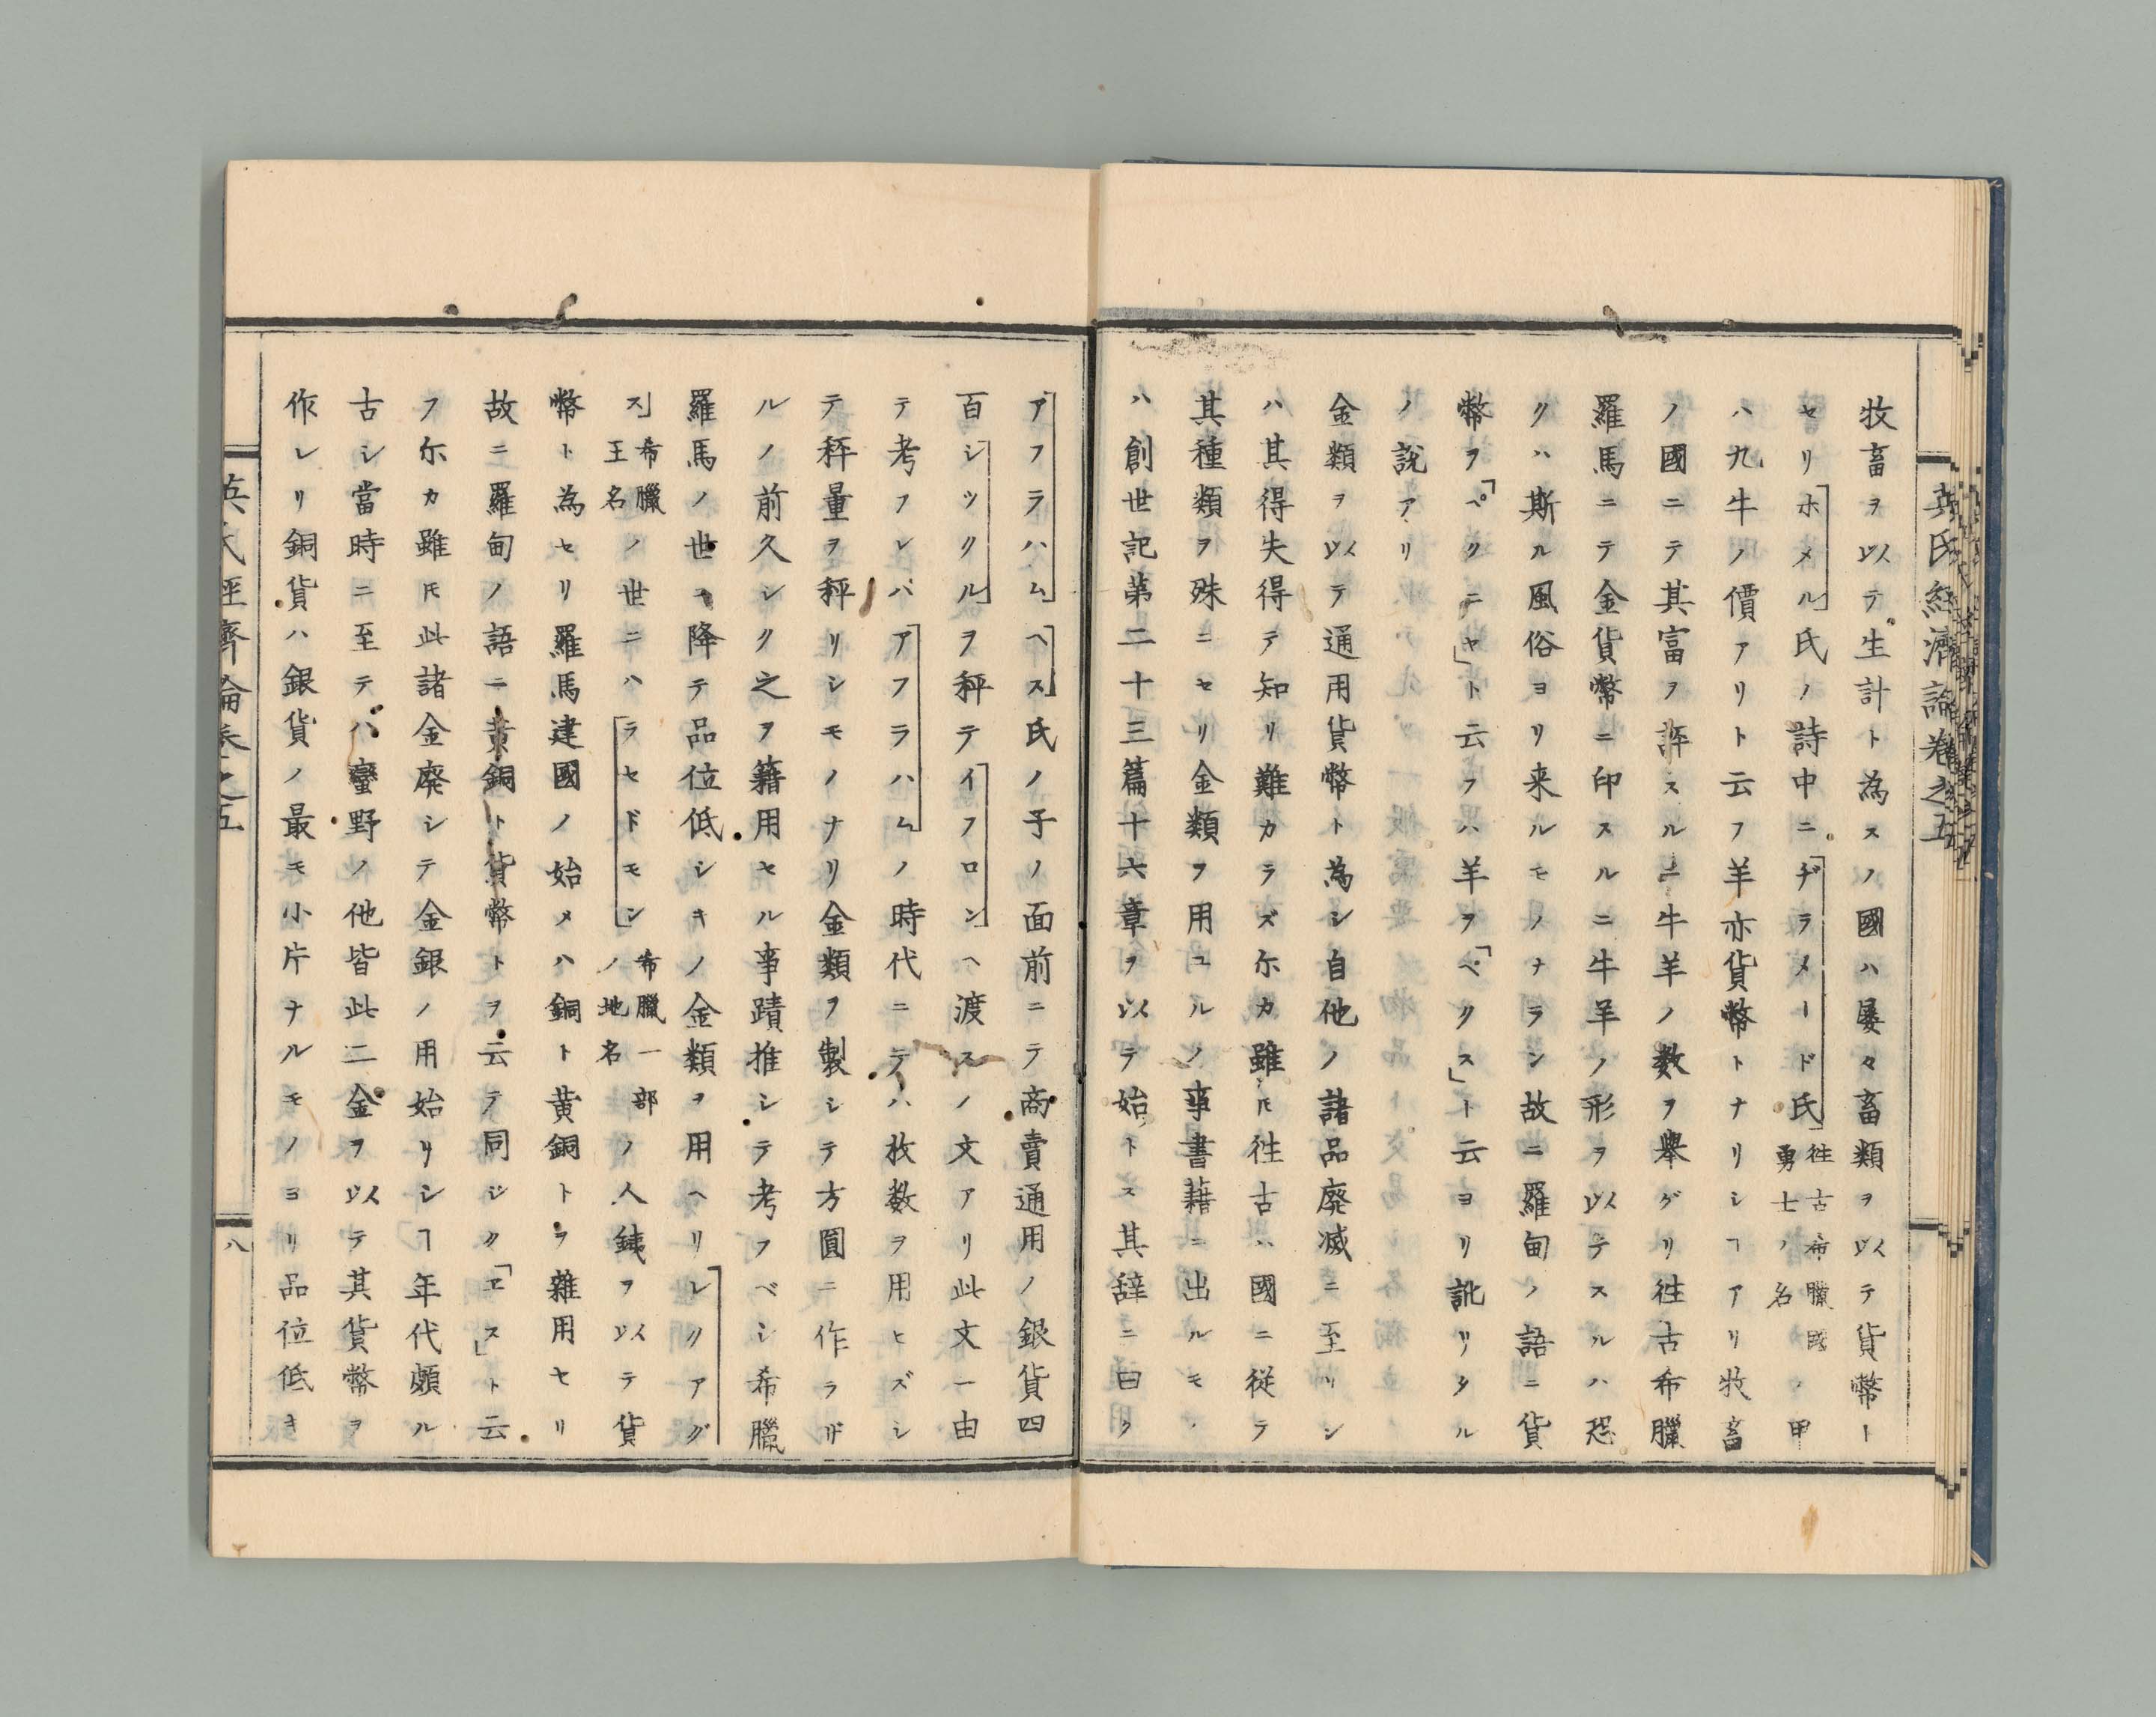 英氏経濟論卷之五
牧畜ヲ以テ生計ト為スノ國ハ屡々畜類ヲ以テ貨幣ト
セリ「ホメル」氏ノ詩中ニ「ヂラメード氏」往古希臘國勇士ノ名ノ甲
ハ九牛ノ價アリト云フ羊亦貨幣トナリシヿアリ牧畜
ノ國ニテ其富ヲ評スルニ牛羊ノ数ヲ擧グリ徃古希臘
羅馬ニテ金貨幣ニ印スルニ牛羊ノ形ヲ以テスルハ恐
クハ斯ル風俗ヨリ来ルモノナラン故ニ羅甸ノ語ニ貨
幣ヲ「ペクニヤ」ト云フハ羊ヲ「ペクス」ト云ヨリ訛リタル
ノ說アリ
金類ヲ以テ通用貨幣ト為シ自他ノ諸品廃滅ニ至リシ
ハ其得失得テ知リ難カラズ尓カ雖𪜈徃古ハ國ニ従ラ
其種類ヲ殊ニセリ金類ヲ用ユルノ事書藉ニ出ルモノ
ハ創世記苐二十三篇十六章ヲ以テ始トス其辞ニ曰ク
「アフラハム」「ヘス」氏ノ子ノ面前ニテ商賣通用ノ銀貨四
百「シックル」ヲ秤テ「イフロン」ヘ渡スノ文アリ此文一由
テ考フレバ「アフラハム」ノ時代ニテハ枚数ヲ用ヒズシ
テ秤量ヲ秤リシモノナリ金類ヲ製シテ方圓ニ作ラザ
ルノ前久シク之ヲ籍用セル事蹟推シテ考フベシ希臘
羅馬ノ世ニ降テ品位低シキノ金類ヲ用ヘリ「レクアグ
ス」希臘王名ノ世ニハ「ラセドモン」希臘一部ノ地名ノ人銕ヲ以テ貨
幣ト為セリ羅馬建國ノ始メハ銅ト黄銅トヲ雜用セリ
故ニ羅甸ノ語ニ黄銅ト貨幣トヲ云テ同ジク「ヱス」ト云
フ尓カ雖𪜈此諸金廃シテ金銀ノ用始リシヿ年代頗ル
古シ當時ニ至テハ蠻野ノ他皆此二金ヲ以テ其貨幣ヲ
作レリ銅貨ハ銀貨ノ最モ小片ナルモノヨリ品位低キ
英氏経濟論卷之五
八